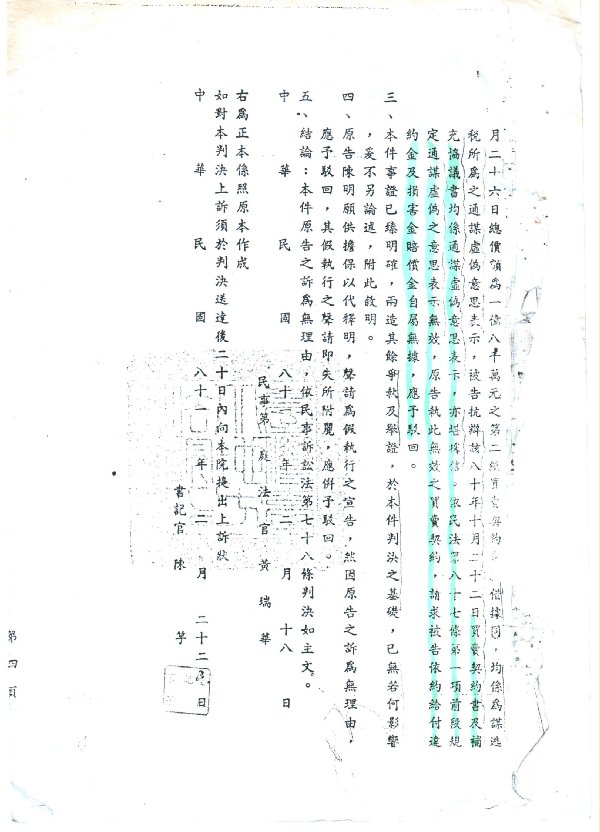 月二十六日總價額爲一億八千萬元之第二紙買賣契約、借據同，均係爲謀逃
稅所爲之通謀虛偽意思表示，被告抗辯該八十年十月二十二日買賣契約書及補
充協議書均係通謀虛偽意思表示，亦堪採信。依民法第八十七條第一項前段規
定通謀虛偽之意思表示無效，原告執此無效之買賣契約，請求被告依約給付違
約金及損害金賠償金自屬無據，應予駁回。
三、本件事證已臻明確，兩造其餘爭執及舉證，於本件判決之基礎，已無若何影響
，爰不另論述，附此敘明。
四、原告陳明願供擔保以代釋明，聲請爲假執行之宣告，然因原告之訴爲無理由，
應予駁回，其假執行之聲請即失所附麗，應併予駁回。
五、結論：本件原告之訴爲無理由，依民事訴訟法第七十八條判決如主文。
中華民國八十一年二月十八日
民事第 庭法官黃瑞華
右爲正本係照原本作成
如對本判決上訴須於判決送達後二十日內向本院提出上訴狀
中華民國八十一年二月二十二日
書記官陳
第四頁